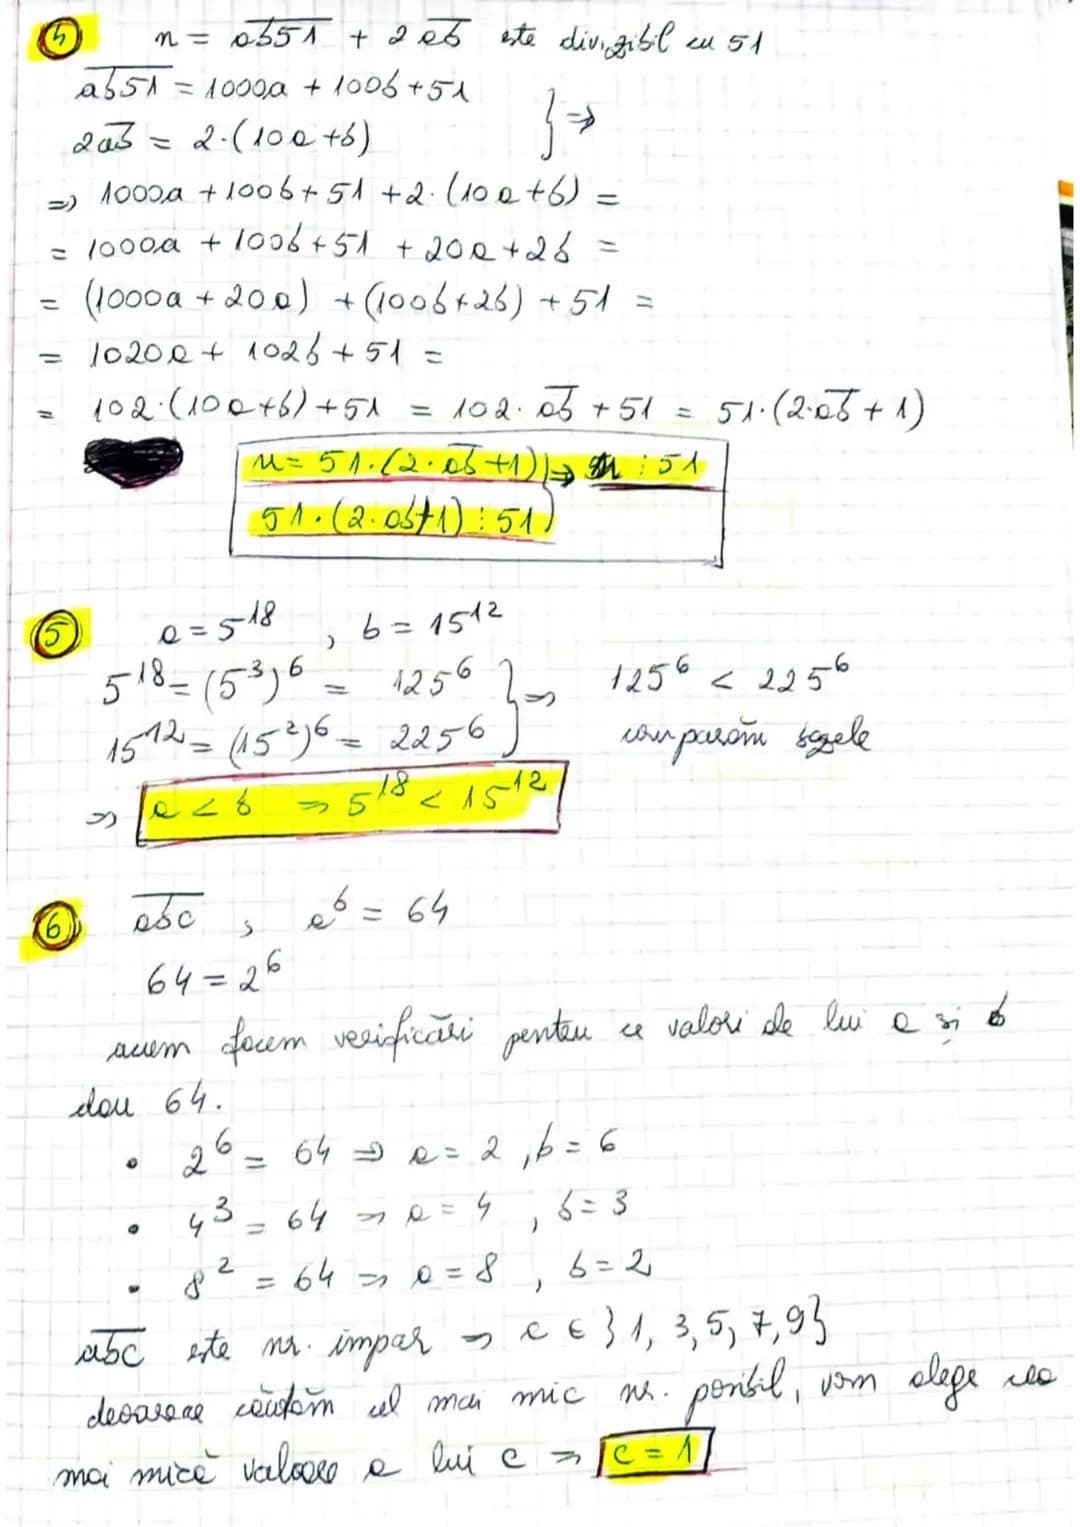 4 n = ab51 + 2ab este divizibil cu 51
ab51 = 1000a + 100b + 51
2ab = 2·(10a+b) } ⇒
⇒ 1000a + 100b + 51 + 2·(10a+b) =
= 1000a + 100b + 51 + 20a + 2b =
= (1000a + 20a) + (100b + 2b) + 51 =
= 1020a + 102b + 51 =
= 102·(10a+b) + 51 = 102·ab + 51 = 51·(2·ab + 1)
n = 51·(2·ab+1) } ⇒ n ⋮ 51
51·(2·ab+1) ⋮ 51
5 a = 5^18 , b = 15^12
5^18 = (5^3)^6 = 125^6 } ⇒ 125^6 < 225^6
15^12 = (15^2)^6 = 225^6 comparăm bazele
⇒ a < b ⇒ 5^18 < 15^12
6 abc , a^b = 64
64 = 2^6
acum facem verificări pentru ce valori de lui a și b
dau 64.
• 2^6 = 64 ⇒ a = 2 , b = 6
• 4^3 = 64 ⇒ a = 4 , b = 3
• 8^2 = 64 ⇒ a = 8 , b = 2
abc este nr. impar ⇒ c ∈ }1, 3, 5, 7, 9}
deoarece căutăm cel mai mic nr. posibil, vom alege cea
mai mică valoare a lui c ⇒ c = 1